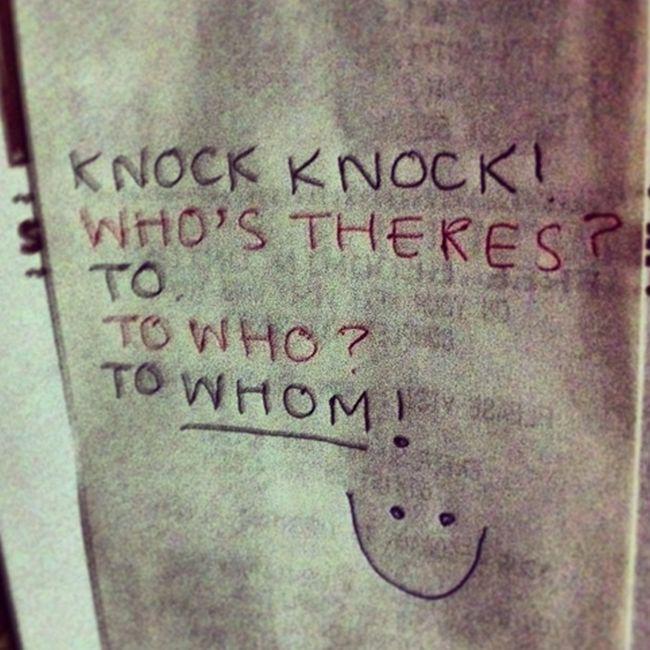 KNOCK KNOCK!
WHO'S THERES?
TO.
TO WHO?
TO WHOM!